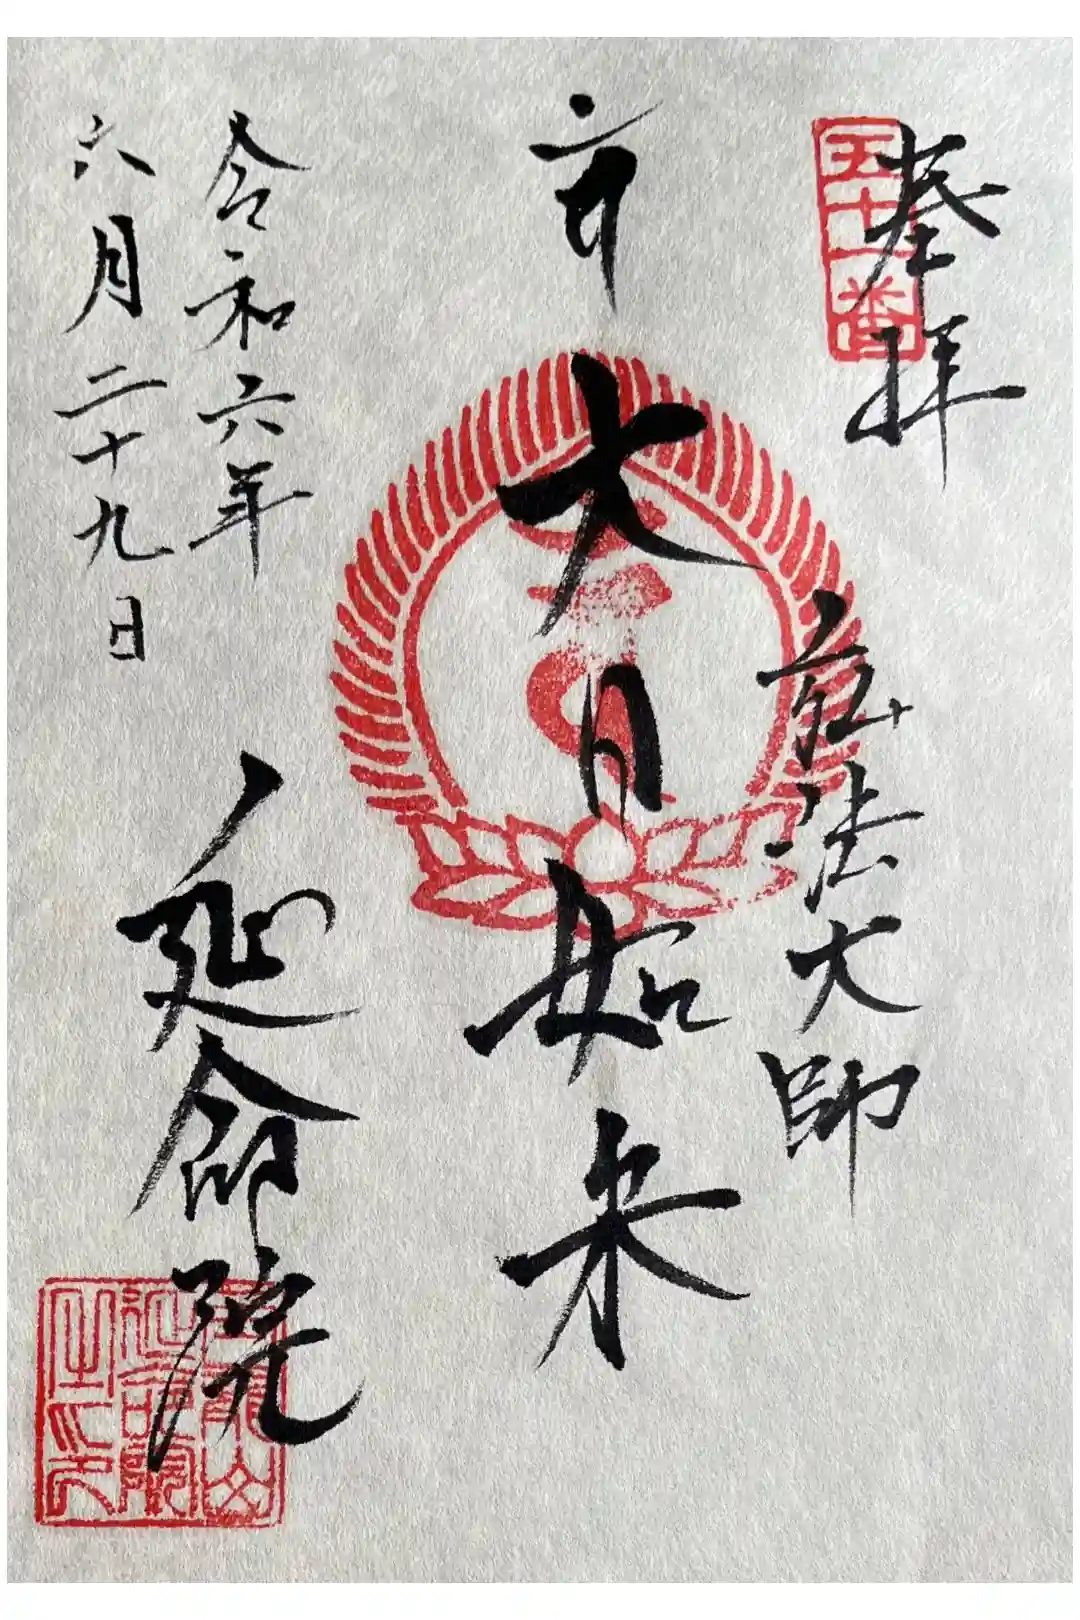 奉拝
五十一番
弘法大師
大日如来
令和六年
六月二十九日
延命院
延命院
之印